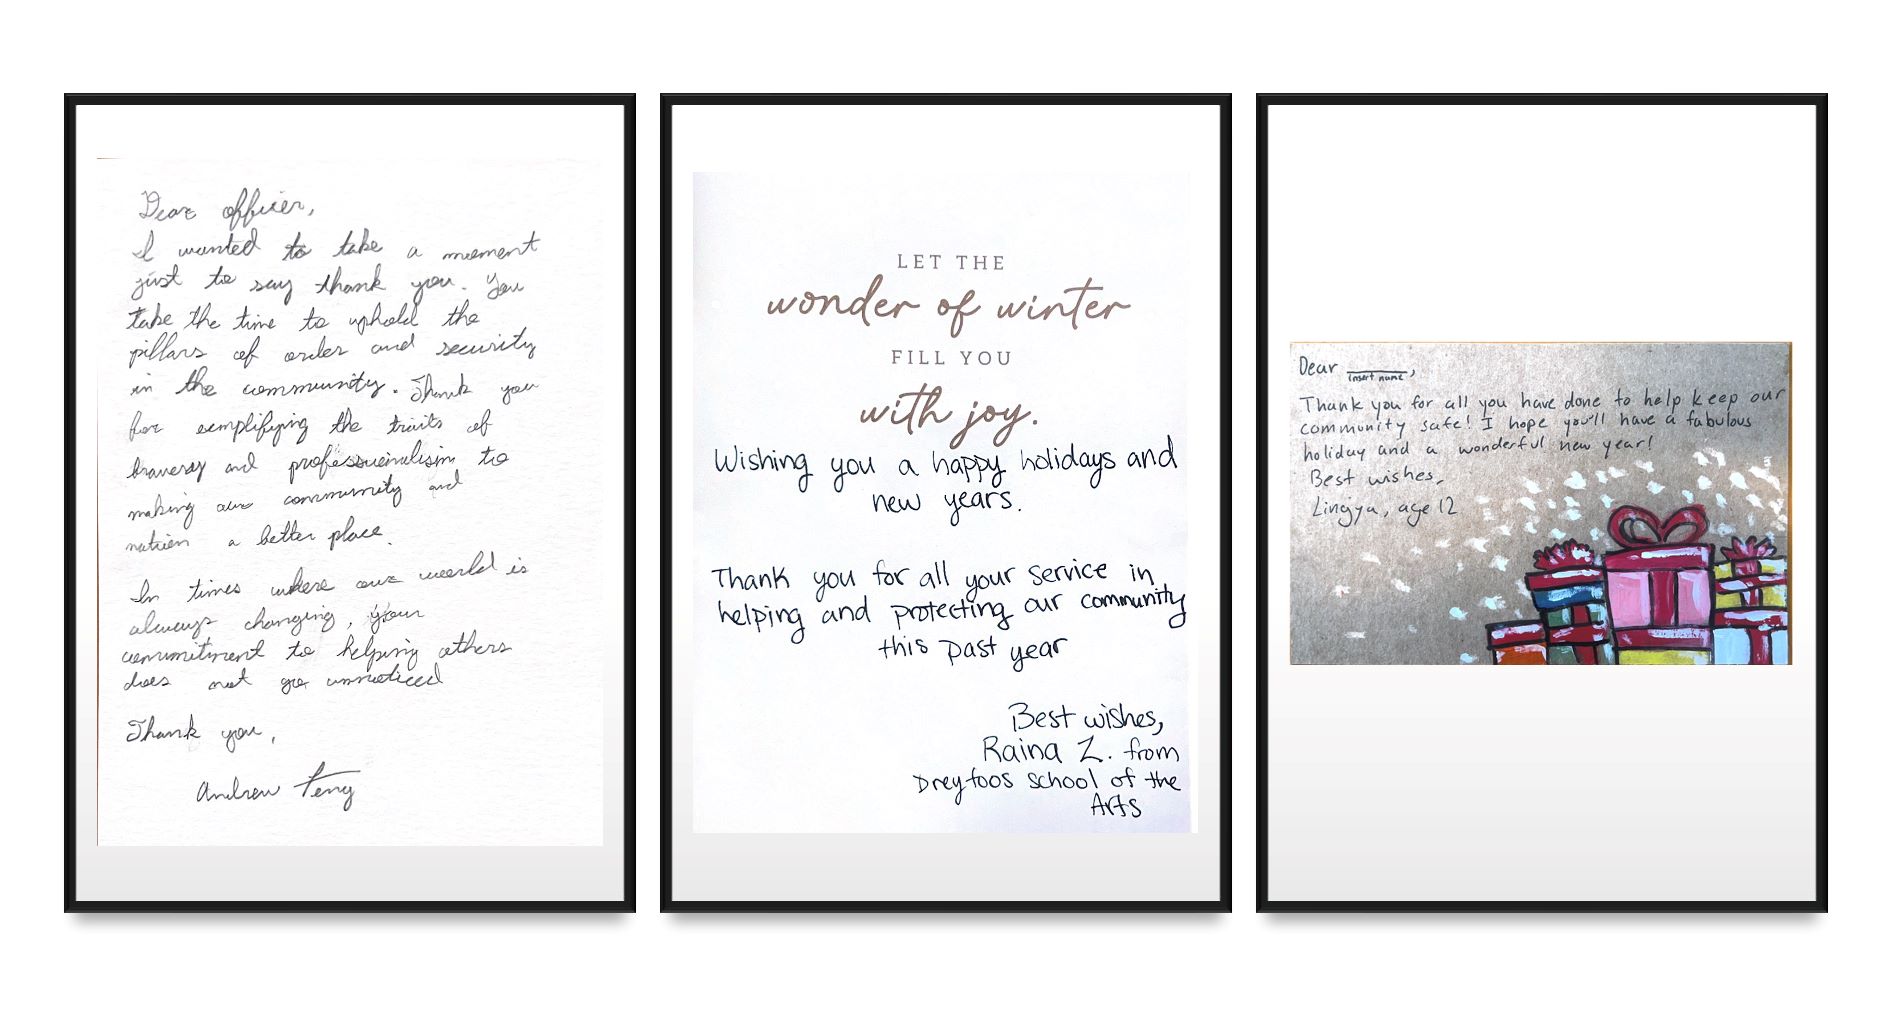 Dear officer,
I wanted to take a moment
just to say thank you. You
take the time to uphold the
pillars of order and security
in the community. Thank you
for exmplifying the traits of
bravery and professionalism to
making our community and
nation a better place.
In times where our world is
always changing, your
commitment to helping others
does not go unnoticed
Thank you,
Andrew
LET THE
wonder of winter
FILL YOU
with joy.
Wishing you a happy holidays and
new years.
Thank you for all your service in
helping and protecting our community
this past year
Best wishes,
Raina Z. from
Dreyfoos School of the
Arts
Dear ________,
insert name
Thank you for all you have done to help keep our
community safe! I hope you'll have a fabulous
holiday and a wonderful new year!
Best wishes,
Lingya, age 12